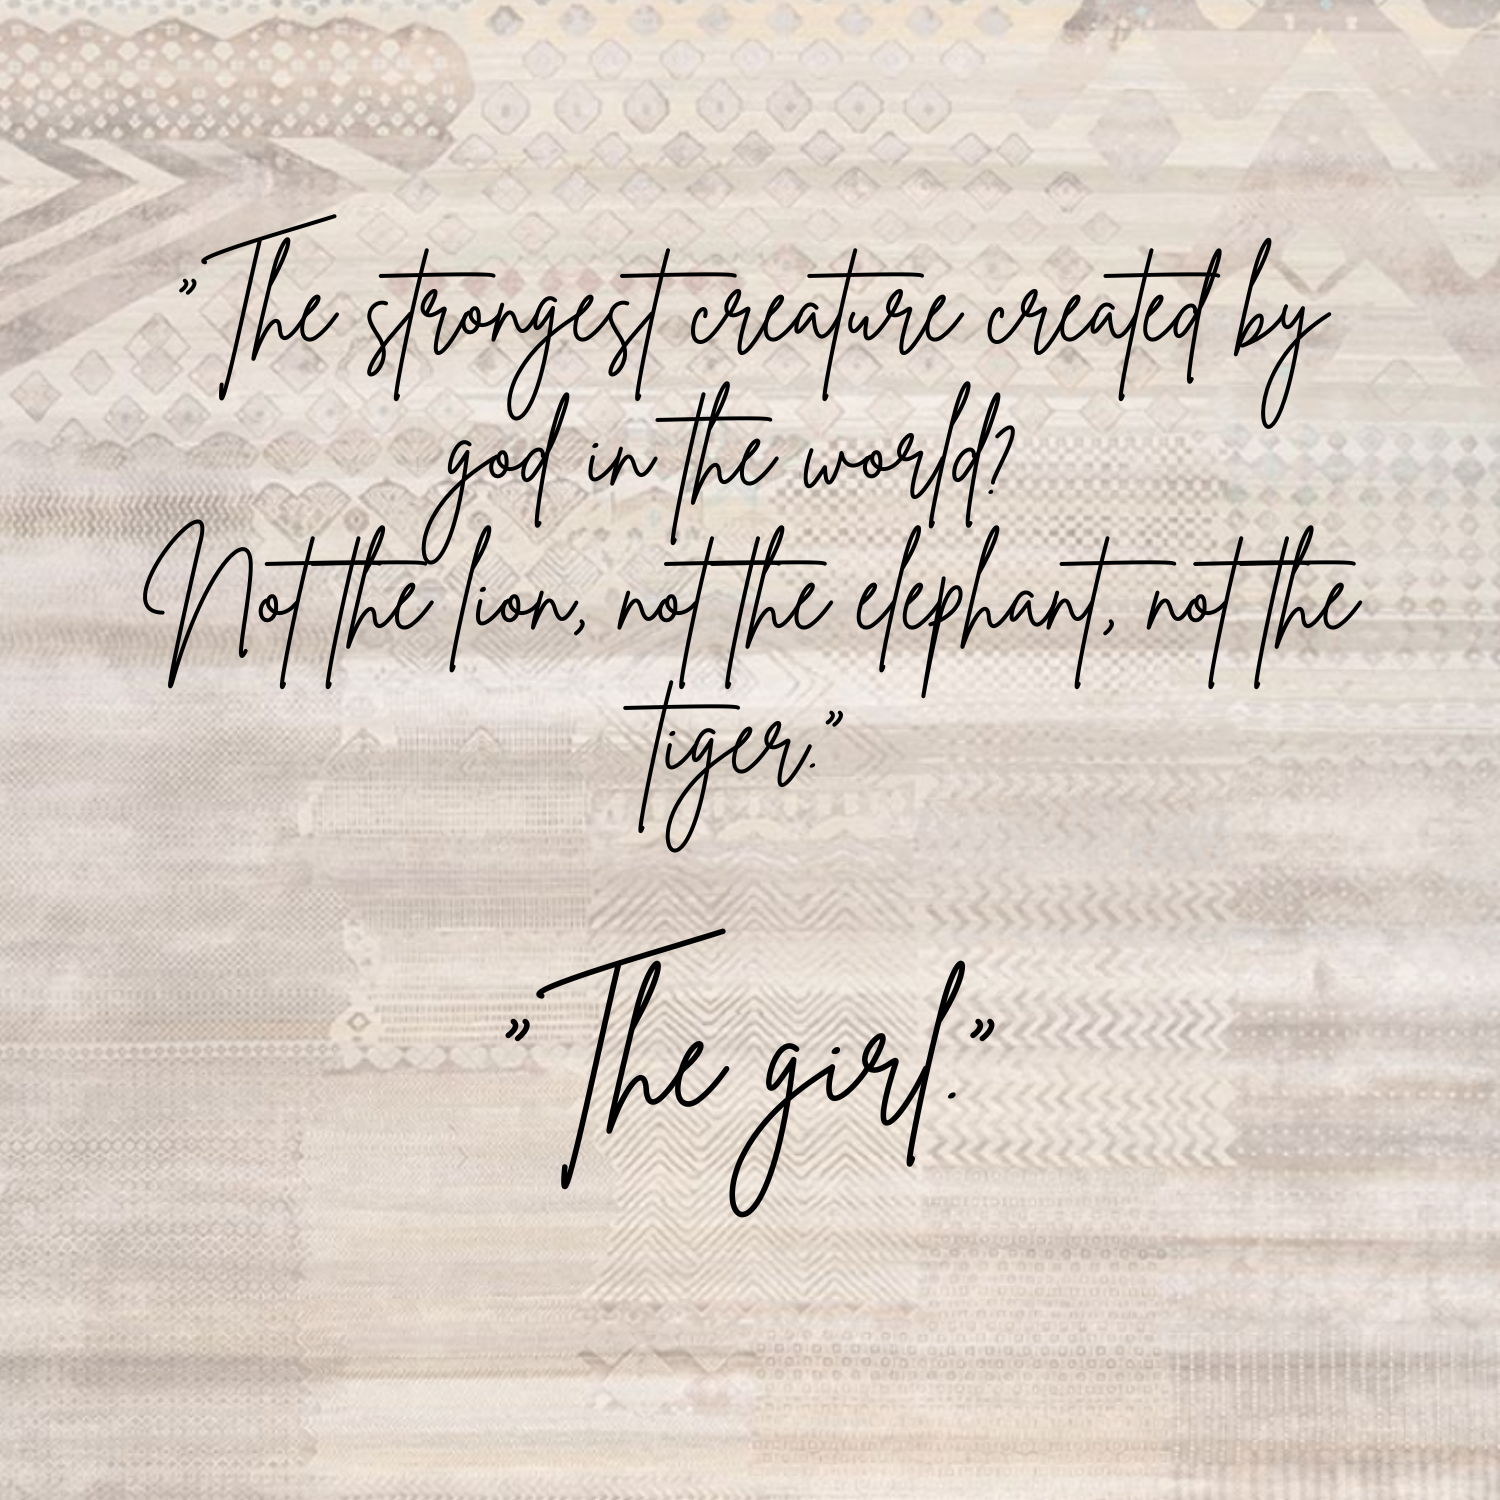 ”The strongest creature created by
god in the world?
Not the lion, not the elephant, not the
tiger.”
”The girl.”